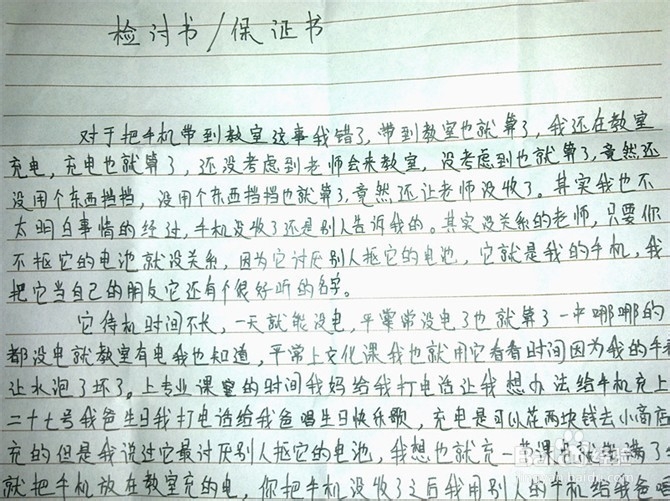 检讨书/保证书
对于把手机带到教室这事我错了，带到教室也就算了，我还在教室
充电，充电也就算了，还没考虑到老师会来教室，没考虑到也就算了，竟然还
没用个东西挡挡，没用个东西挡挡也就算了，竟然还让老师没收了。其实我也不
太明白事情的经过，手机没收了还是别人告诉我的。其实没关系的老师，只要你
不抠它的电池就没关系，因为它讨厌别人抠它的电池，它就是我的手机，我
把它当自己的朋友它还有个很好听的名字。
它待机时间不长，一天就能没电，平常常没电了也就算了一中哪哪的
都没电就教室有电我也知道，平常上文化课我也就用它看看时间因为我的手
让水泡了坏了。上专业课的时间我妈给我打电话让我想办法给手机充上
二十七号我爸生日我打电话给我爸唱生日快乐歌，充电是可以花两块钱去小商店
充的但是我说过它最讨厌别人抠它的电池，我想也就充一节课
就把手机放在教室充的电，你把手机没收了之后我用别人的手机给我爸